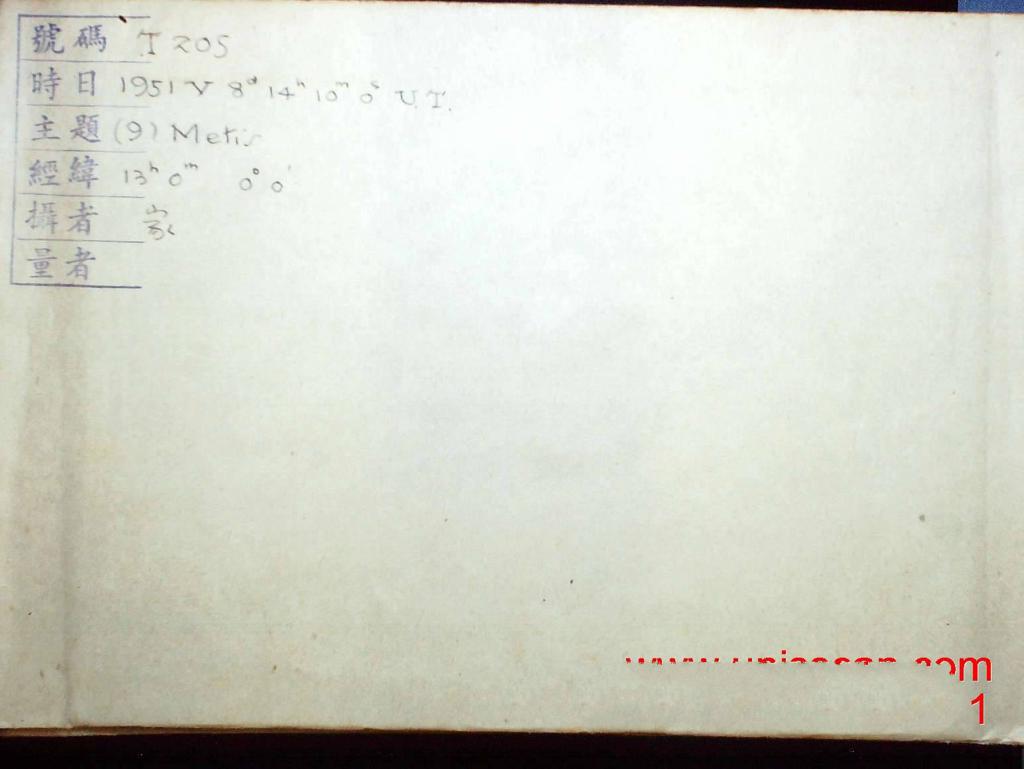 號碼 T 205
時日 1951 V 8d 14h 10m 0s U.T.
主題 (9) Metis
經緯 13h 0m 0° 0'
攝者 家
量者
1